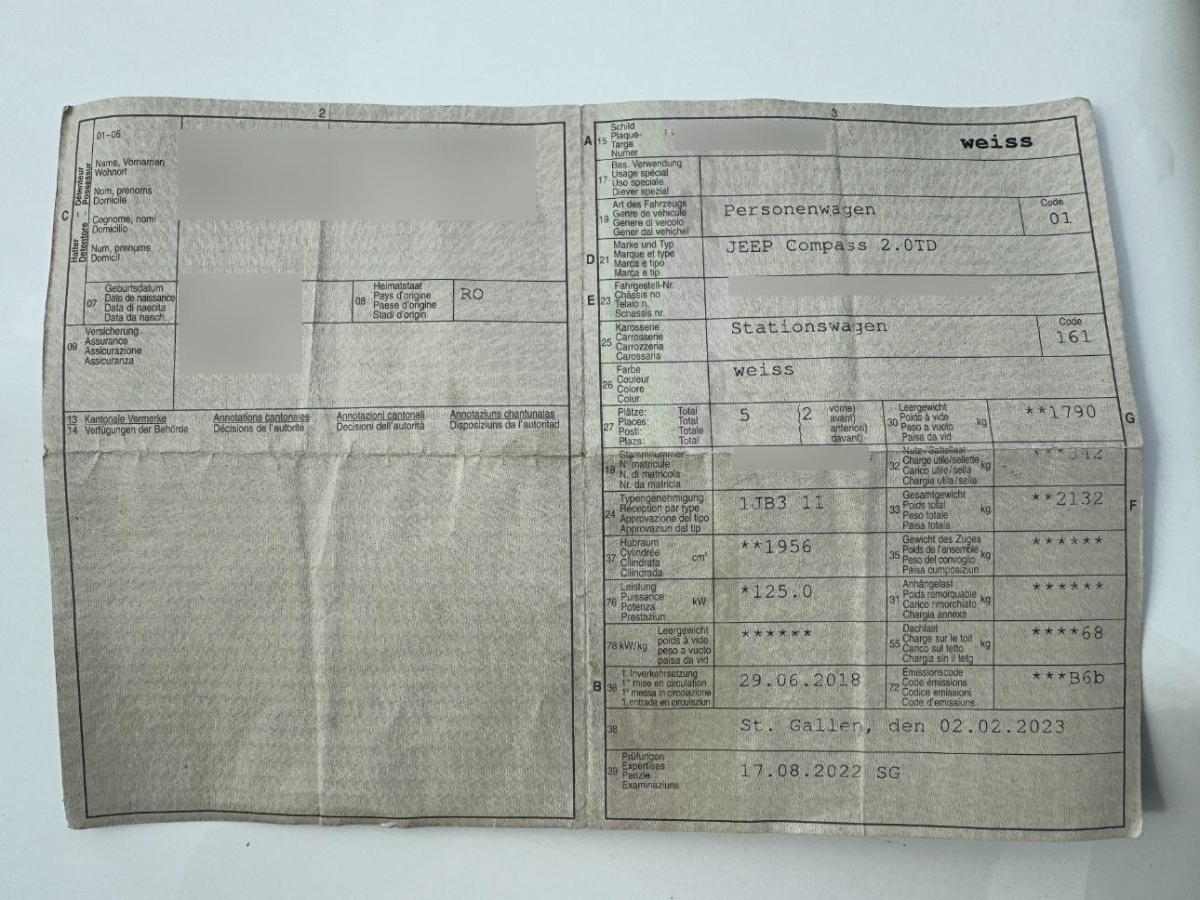 2
01-06
C
Halter - Détenteur
Detentore - Possessur
Name, Vornamen
Wohnort
Nom, prenoms
Domicile
Cognome, nomi
Domicilio
Num, prenums
Domicil
07
Geburtsdatum
Date de naissance
Data di nascita
Data da nasch.
08
Heimatstaat
Pays d'origine
Paese d'origine
Stadi d'origin
RO
09
Versicherung
Assurance
Assicurazione
Assicuranza
13 Kantonale Vermerke
14 Verfügungen der Behörde
Annotations cantonales
Décisions de l'autorité
Annotazioni cantonali
Decisioni dell'autorità
Annotaziuns chantunalas
Disposiziuns da l'autoritad
3
A 15
Schild
Plaque
Targa
Numer
weiss
17
Bes. Verwendung
Usage spécial
Uso speciale
Diever spezial
19
Art des Fahrzeugs
Genre de véhicule
Genere di veicolo
Gener dal vehichel
Personenwagen
Code
01
D 21
Marke und Typ
Marque et type
Marca e tipo
Marca e tip
JEEP Compass 2.0TD
E 23
Fahrgestell-Nr.
Châssis no
Telaio n.
Schassis nr.
25
Karosserie
Carrosserie
Carrozzeria
Carossaria
Stationswagen
Code
161
26
Farbe
Couleur
Colore
Colur
weiss
27
Plätze: Total
Places: Total
Posti: Totale
Plazs: Total
5 (2
vorne)
avant)
anteriori)
davant)
30
Leergewicht
Poids à vide
Peso a vuoto
Paisa da vid
kg
**1790
G
18
Stammnummer
N. matricule
N. di matricola
Nr. da matricla
32
Nutz-/Sattellast
Charge utile/sellette
Carico utile/sella
Chargia utila/sella
kg
***342
24
Typengenehmigung
Réception par type
Approvazione del tipo
Approvaziun dal tip
1JB3 11
33
Gesamtgewicht
Poids total
Peso totale
Paisa totala
kg
**2132
F
37
Hubraum
Cylindrée
Cilindrata
Cilindrada
cm³
**1956
35
Gewicht des Zuges
Poids de l'ensemble
Peso del convoglio
Paisa cumposiziun
kg
******
76
Leistung
Puissance
Potenza
Prestaziun
kW
*125.0
31
Anhängelast
Poids remorquable
Carico rimorchiato
Chargia annexa
kg
******
78 kW/kg
Leergewicht
poids à vide
peso a vuoto
paisa da vid
******
55
Dachlast
Charge sur le toit
Carico sul tetto
Chargia sin il tetg
kg
****68
B 36
1. Inverkehrsetzung
1re mise en circulation
1a messa in circolazione
1. entrada en circulaziun
29.06.2018
72
Emissionscode
Code émissions
Codice emissioni
Code d'emissiuns
***B6b
38
St. Gallen, den 02.02.2023
39
Prüfungen
Expertises
Perizie
Examinaziuns
17.08.2022 SG